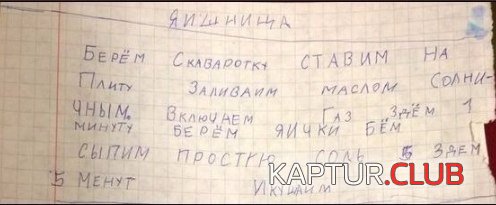 ЯИШНИЦА
БЕРЁМ СКАВАРОТКУ СТАВИМ НА
ПЛИТУ ЗАЛИВАИМ МАСЛОМ СОЛНИ-
ЧНЫМ. ВКЛЮЧАЕМ ГАЗ ЗДЁМ 1
МИНУТУ БЕРЁМ ЯИЧКИ БЁМ
СЫПИМ ПРОСТУЮ СОЛЬ Б ЗДЕМ
5 МЕНУТ ИКУШАИМ
KAPTUR.CLUB